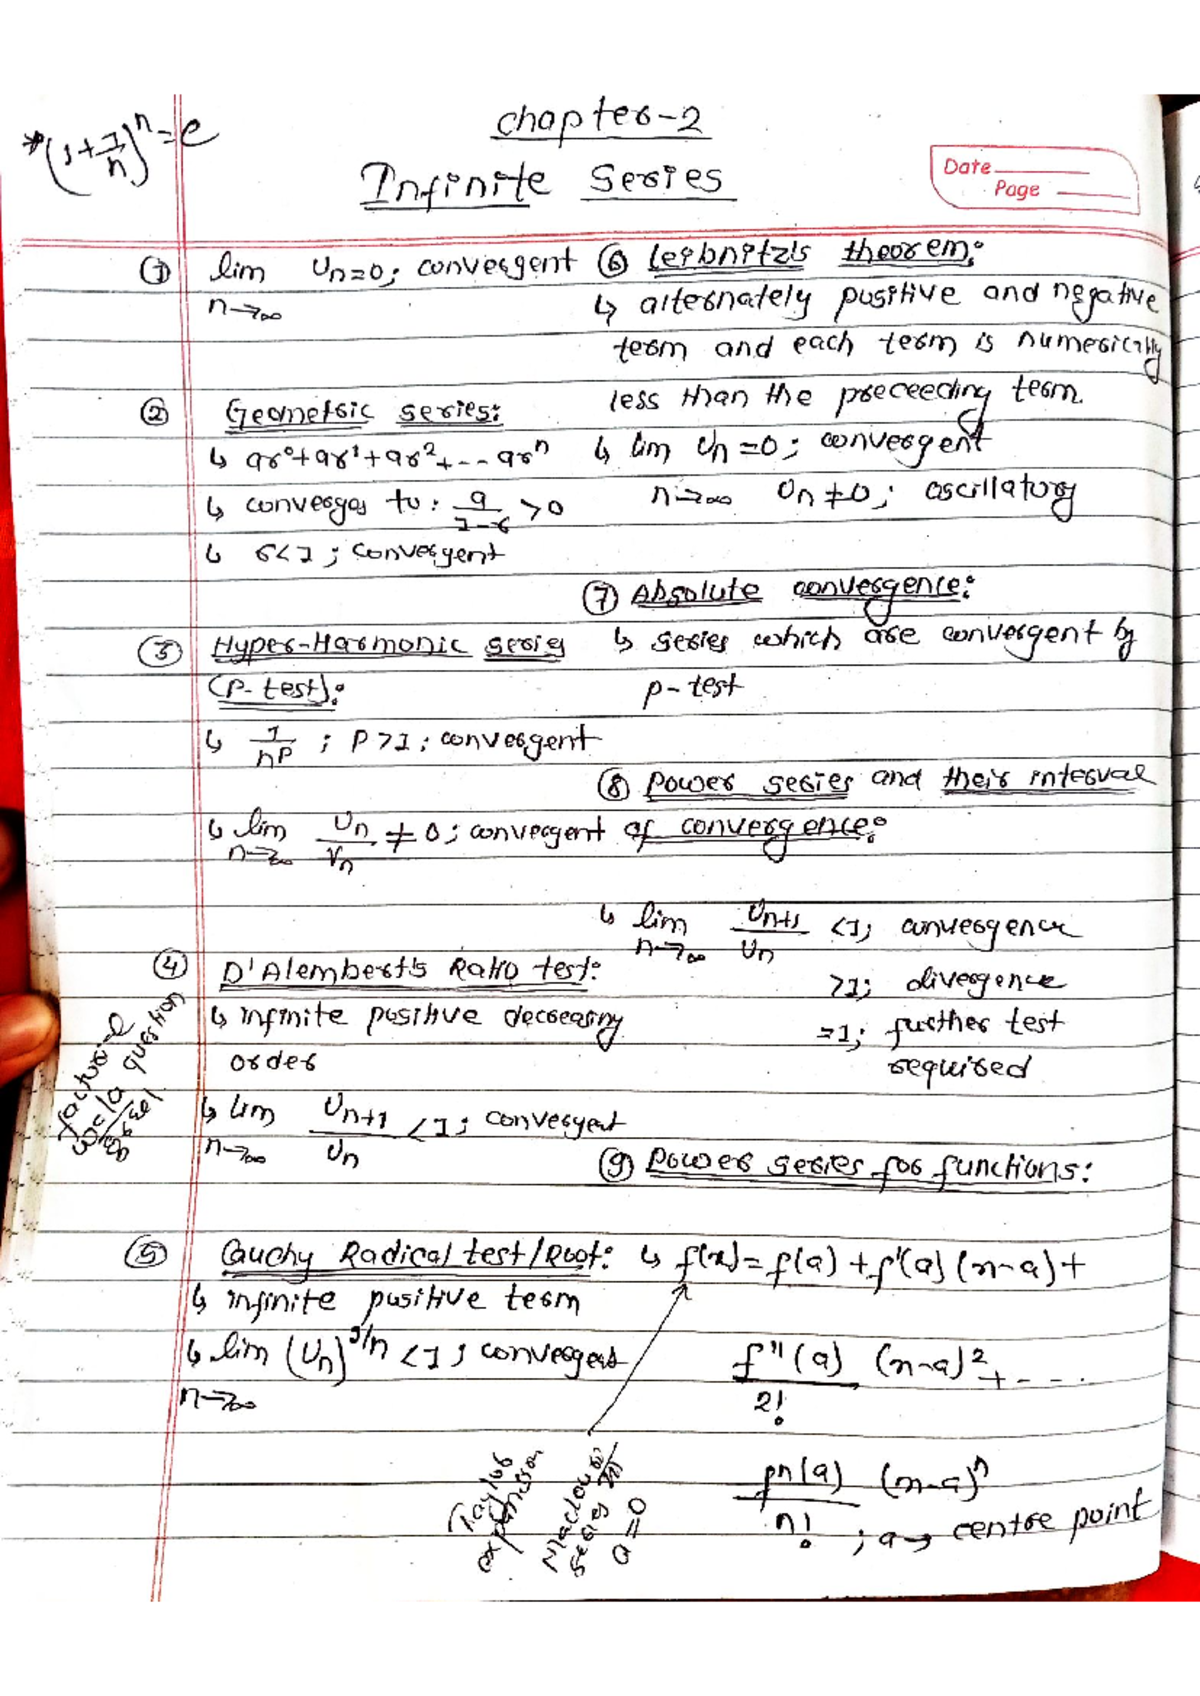 Chapter-2
*(1+1/n)^n = e
Infinite Series
Date
Page
① lim Un=0; convergent
n→∞
② Geometric series:
↳ ar⁰+ar¹+ar²+--arⁿ
↳ converges to: a/1-r >0
↳ r<1; convergent
③ Hyper-Harmonic series
(P-test):
↳ 1/nᴾ ; P>1; convergent
↳ lim Un/Vn ≠ 0; convergent
n→∞
④ D'Alembert's Ratio test:
↳ infinite positive decreasing
order
↳ lim Un+1/Un <1; convergent
n→∞
factorial
wala question
⑤ Cauchy Radical test/Root:
↳ infinite positive term
↳ lim (Un)^1/n <1; convergent
n→∞
⑥ Leibnitz's theorem:
↳ alternately positive and negative
term and each term is numerically
less than the preceeding term.
↳ lim Un=0; convergent
n→∞ Un≠0; oscillatory
⑦ Absolute convergence:
↳ series which are convergent by
p-test
⑧ Power series and their interval
of convergence:
↳ lim Un+1/Un <1; convergence
n→∞
>1; divergence
=1; further test
required
⑨ Power series for functions:
↳ f(x)=f(a)+f'(a)(x-a)+
f''(a)/2! (x-a)²+---
fⁿ(a)/n! (x-a)ⁿ
; a→ centre point
Taylor
expansion
series
a=0